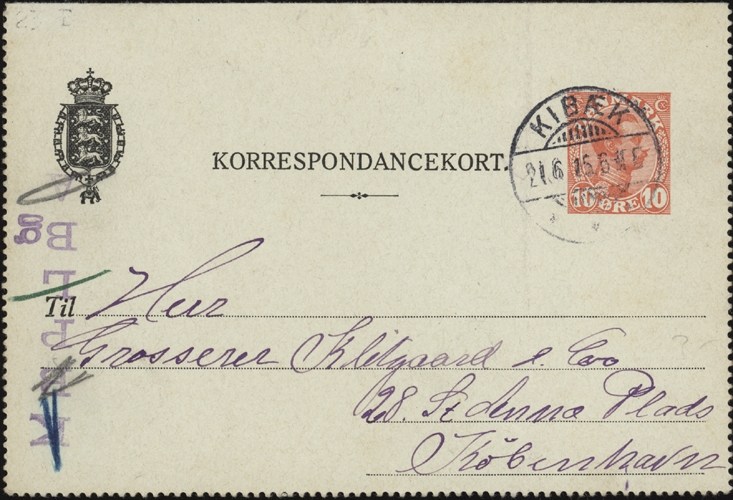 KORRESPONDANCEKORT.
KIBÆK
21.6 15.6
10 ØRE 10
Til Herr
Grosserer Klitgaard & Coo
28. St Annæ Plads
København